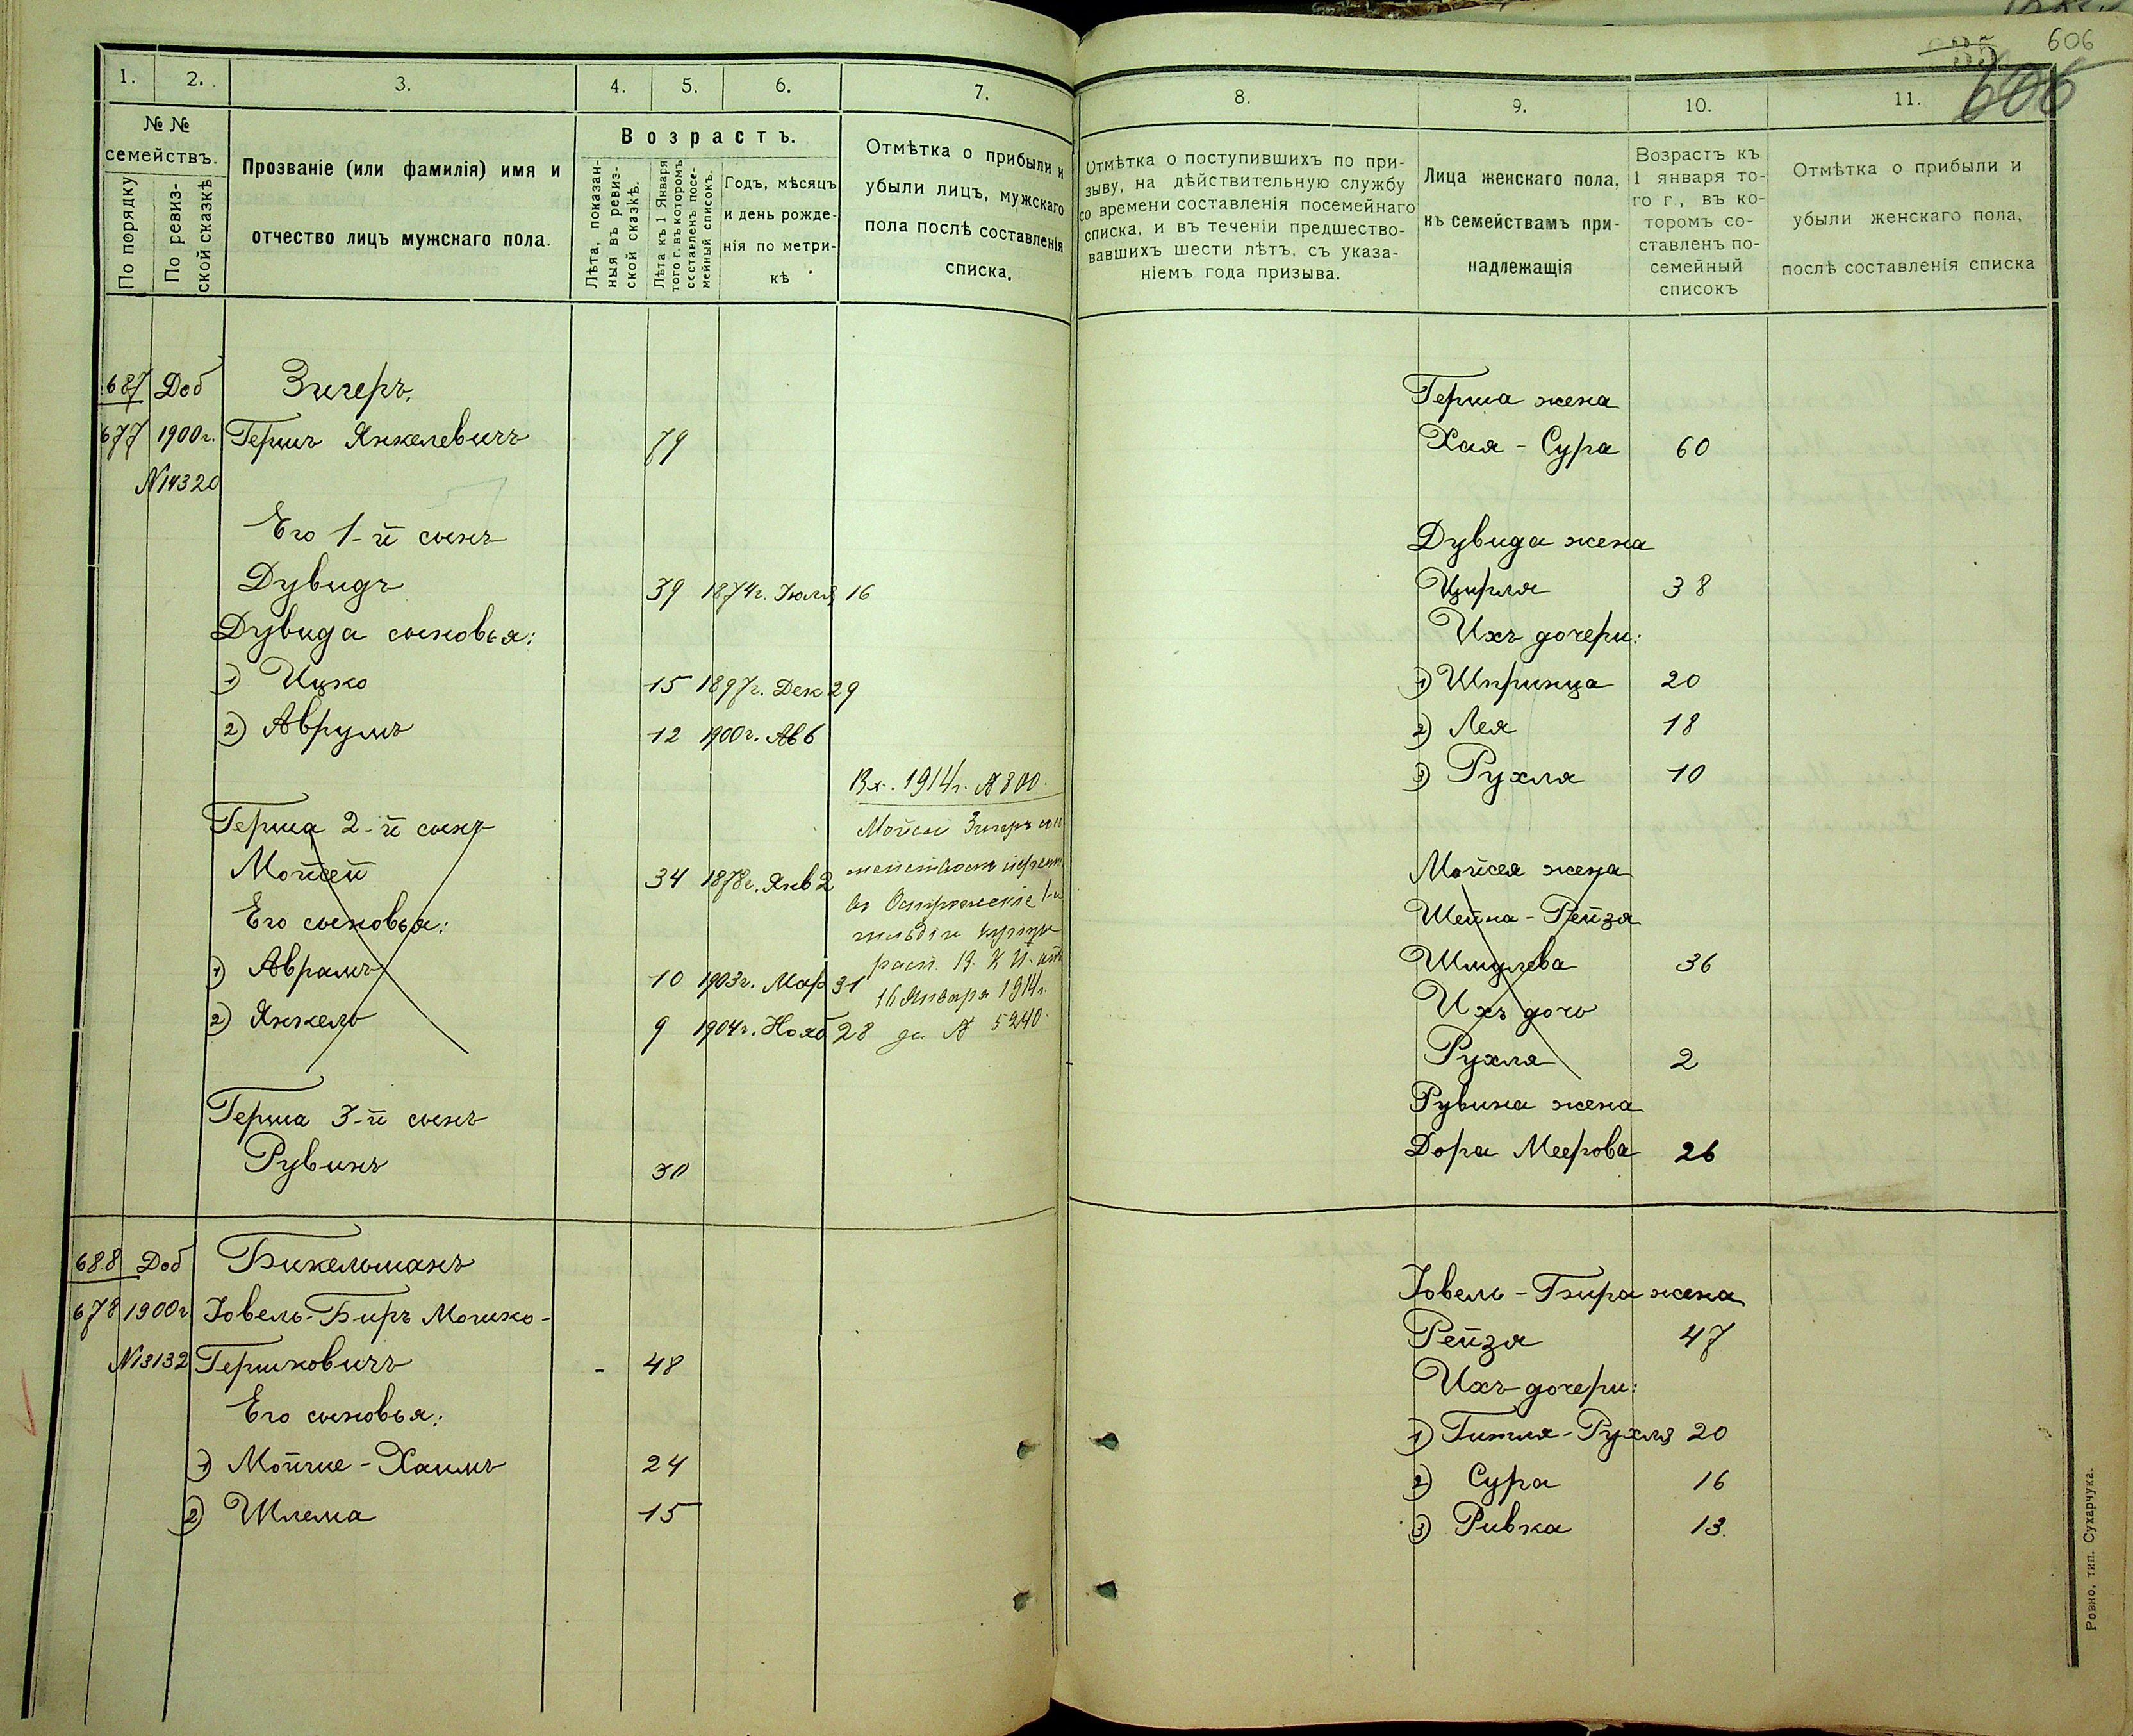 606
606
1.
2.
3.
4.
5.
6.
7.
№ №
семействъ.
По порядку
По ревиз-
ской сказкѣ
Прозваніе (или фамилія) имя и
отчество лицъ мужскаго пола.
Возрастъ.
Лѣта, показан-
ныя въ ревиз-
ской сказкѣ.
Лѣта къ 1 Января
того г. въ которомъ
составленъ посе-
мейный списокъ.
Годъ, мѣсяцъ
и день рожде-
нія по метри-
кѣ
Отмѣтка о прибыли и
убыли лицъ, мужскаго
пола послѣ составленія
списка.
687 Доб Зигеръ.
677 1900г. Гершъ Янкелевичъ 79
№14320
Его 1-й сынъ
Дувидъ 39 1874г. Июля 16
Дувида сыновья:
1) Ицко 15 1897г. Дек 29
2) Аврумъ 12 1900г. Ав 6
Вх. 1914г. № 800.
Герша 2-й сынъ
Мойсей Зигеръ
Мойсей 34 1878г. Янв 2
въ Острожскіе 1-й
Его сыновья:
гильдіи купцы
1) Аврамъ 10 1903г. Мар 31
16 Января 1914г.
2) Янкель 9 1904г. Нояб 28
за № 5240.
Герша 3-й сынъ
Рувинъ 30
688 Доб Бикельманъ
678 1900г. Іовель-Биръ Мошко-
№13132 Гершковичъ - 48
Его сыновья:
1) Мойше-Хаимъ 24
2) Шлема 15
8.
9.
10.
11.
Отмѣтка о поступившихъ по при-
зыву, на дѣйствительную службу
со времени составленія посемейнаго
списка, и въ теченіи предшество-
вавшихъ шести лѣтъ, съ указа-
ніемъ года призыва.
Лица женскаго пола,
къ семействамъ при-
надлежащія
Возрастъ къ
1 января то-
го г., въ ко-
торомъ со-
ставленъ по-
семейный
списокъ
Отмѣтка о прибыли и
убыли женскаго пола,
послѣ составленія списка
Герша жена
Хая-Сура 60
Дувида жена
Цирля 38
Ихъ дочери:
1) Шпринца 20
2) Лея 18
3) Рухля 10
Мойсея жена
Шейна-Рейзя
Шмулева 36
Ихъ дочь
Рухля 2
Рувина жена
Дора Меерова 26
Іовель-Бира жена
Рейзя 47
Ихъ дочери:
1) Гитля-Рухля 20
2) Сура 16
3) Ривка 13.
Ровно, тип. Сухарчука.